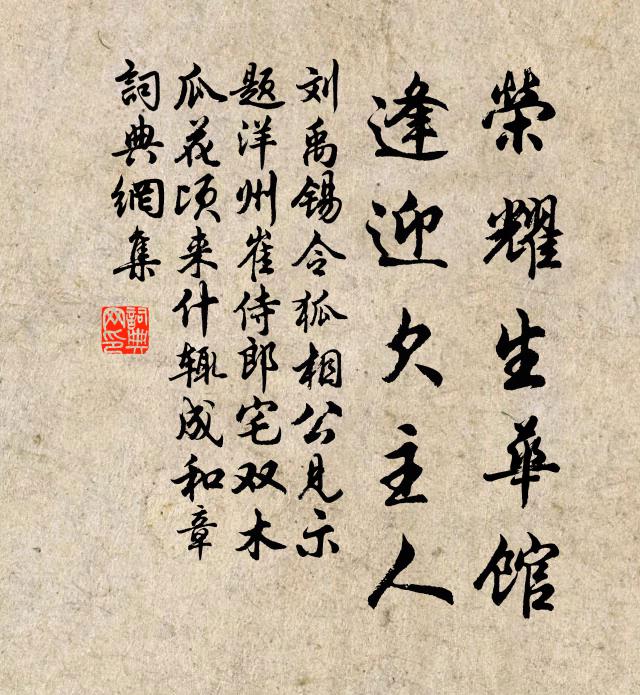 榮耀生華館
逢迎欠主人
刘禹锡令狐相公見示
题洋州崔侍郎宅双木
瓜花顷来什辄成和章
詞典網集
詞典網印